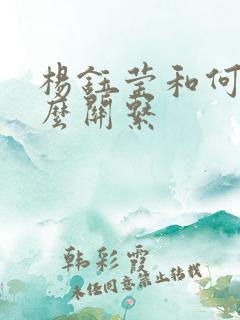 楊鈺莹和何
麼關繫
韩彩霞
未经同意禁止转载